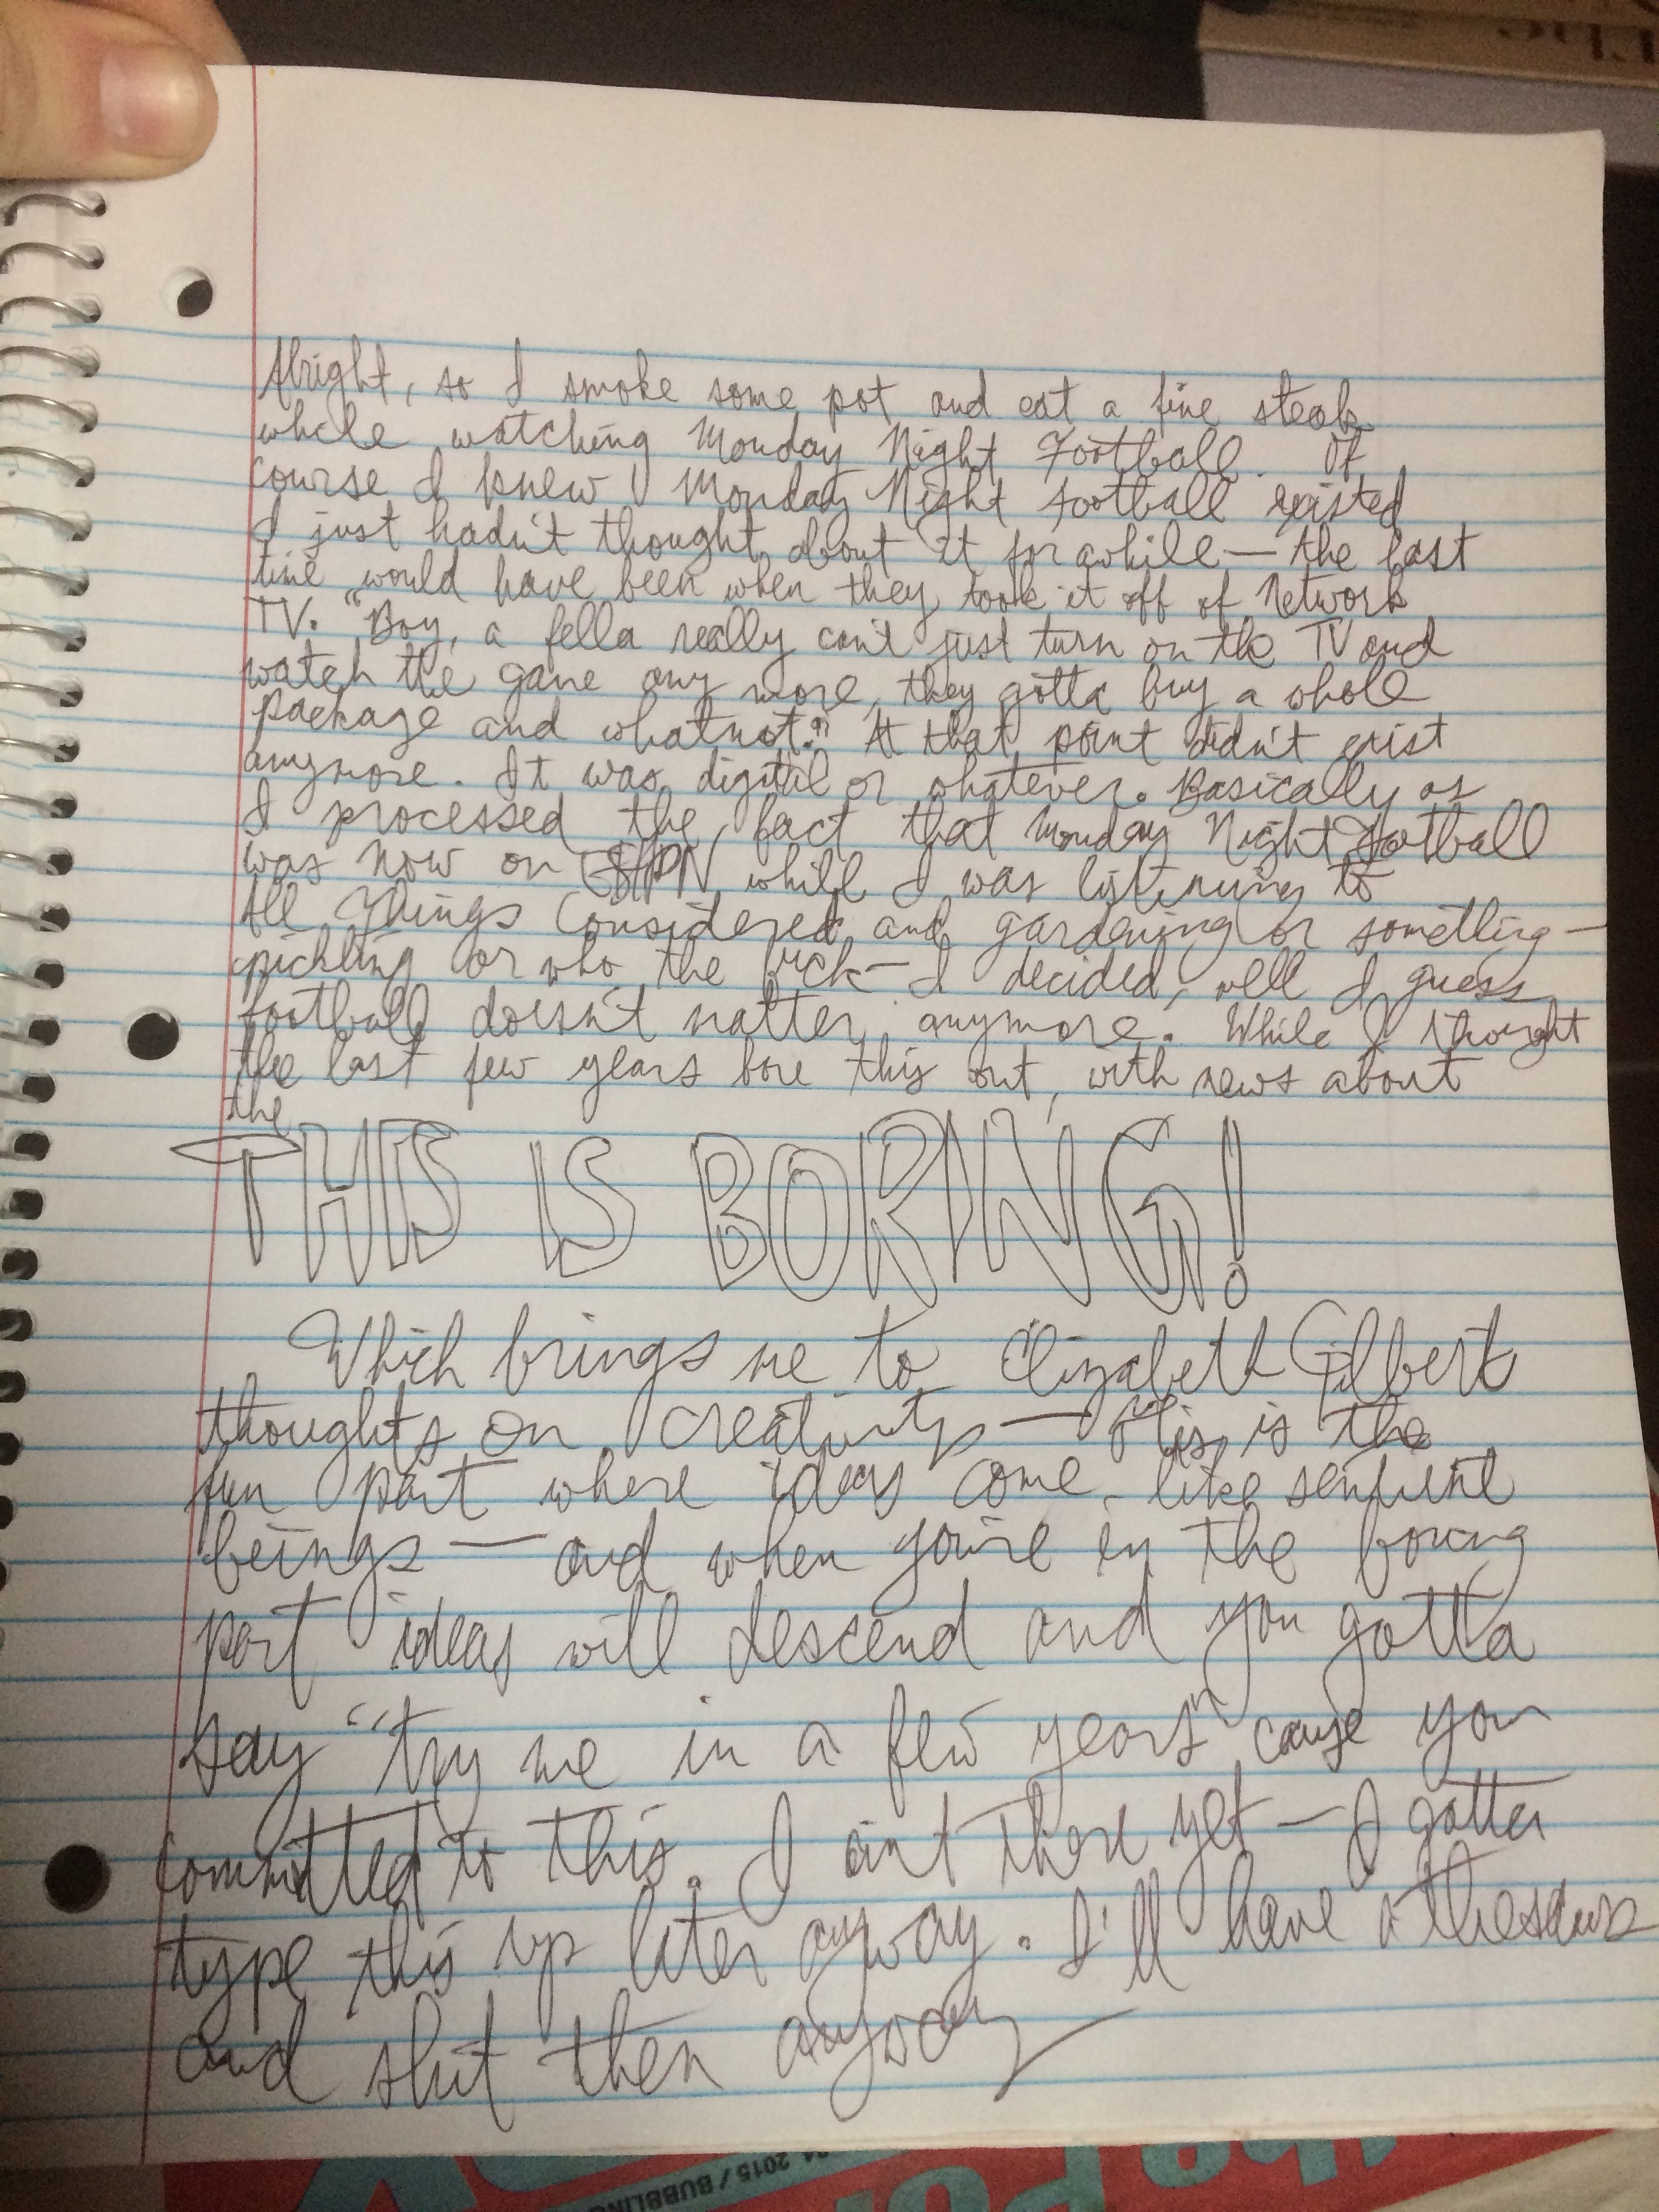 Alright, so I smoke some pot and eat a fine steak
while watching Monday Night Football. Of
course I knew Monday Night Football existed
I just hadn't thought about it for awhile — the last
time would have been when they took it off of Network
TV. "Boy, a fella really can't just turn on the TV and
watch the game any more, they gotta buy a whole
package and whatnot." At that point didn't exist
anymore. It was digital or whatever. Basically as
I processed the fact that Monday Night Football
was now on ESPN while I was listening to
All Things Considered and gardening or something —
pickling or who the fuck — I decided, well I guess
football doesn't matter anymore. While I thought
the last few years bore this out, with news about
the
THIS IS BORING!
Which brings me to Elizabeth Gilbert
thoughts on creativity — this is the
fun part where ideas come like sentient
beings — and when you're in the boring
part ideas will descend and you gotta
say "try me in a few years" cause you
committed to this. I ain't there yet — I gotta
type this up later anyway. I'll have a thesaurus
and shit then anyway
2015 / BUBBLIN
the